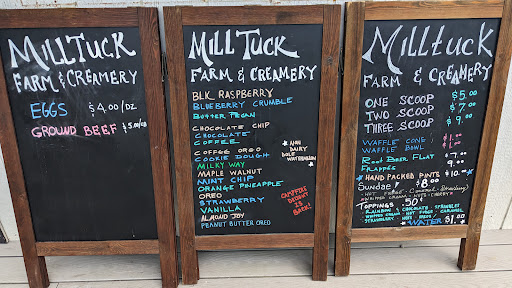 MILLTUCK
FARM & CREAMERY
EGGS $4.00/DZ
GROUND BEEF $5.00/LB
MILLTUCK
FARM & CREAMERY
BLK RASPBERRY
BLUEBERRY CRUMBLE
BUTTER PECAN
CHOCOLATE CHIP
CHOCOLATE
COFFEE
COFFEE OREO
COOKIE DOUGH
MILKY WAY
MAPLE WALNUT
MINT CHIP
ORANGE PINEAPPLE
OREO
STRAWBERRY
VANILLA
ALMOND JOY
PEANUT BUTTER OREO
NON
DAIRY
DOLE
WATERMELON
CAMPFIRE
IS
BACK!
Milltuck
FARM & CREAMERY
ONE SCOOP $5.00
TWO SCOOP $7.00
THREE SCOOP $9.00
WAFFLE CONE
WAFFLE BOWL
Root Beer Float
Frappes
HAND PACKED PINTS $10.00
Sundae $8.00
HOT FUDGE CARAMEL Strawberry
WHIPPED CREAM NUTS CHERRY
TOPPINGS .50
RAINBOW & CHOCOLATE SPRINKLES
WHIPPED CREAM HOT FUDGE CARAMEL
STRAWBERRY NUTS
WATER $1.00